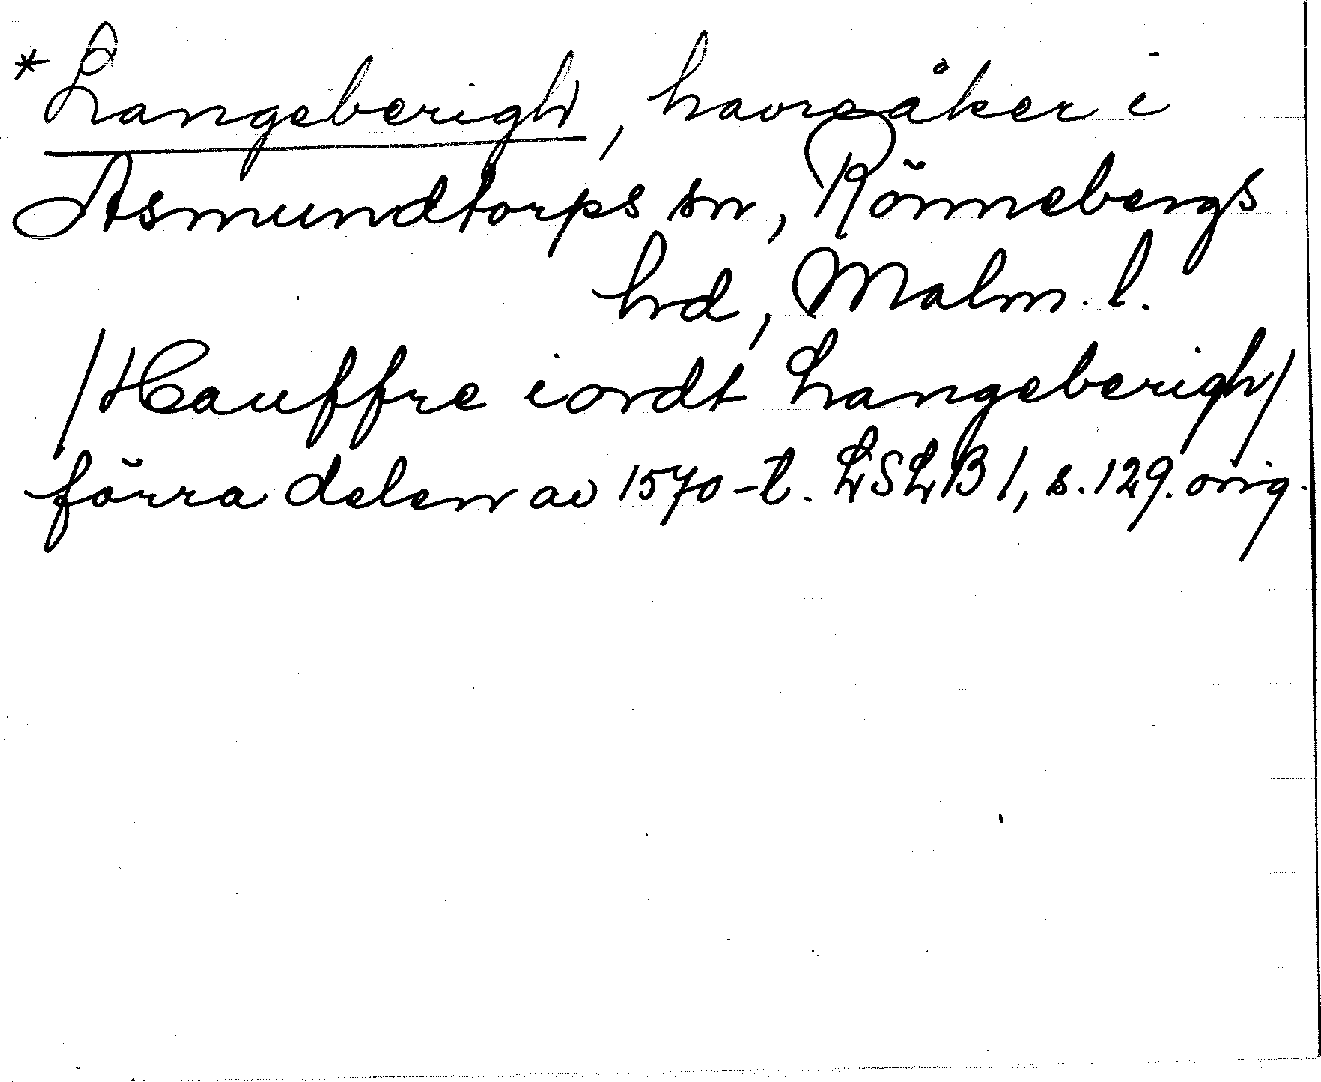 *Langeberigh, havreåker i
Asmundtorps sn, Rönnebergs
hd, Malm. l.
/Hauffre iordt Langeberigh/
förra delen av 1570-t. LSLB 1, s. 129. orig.